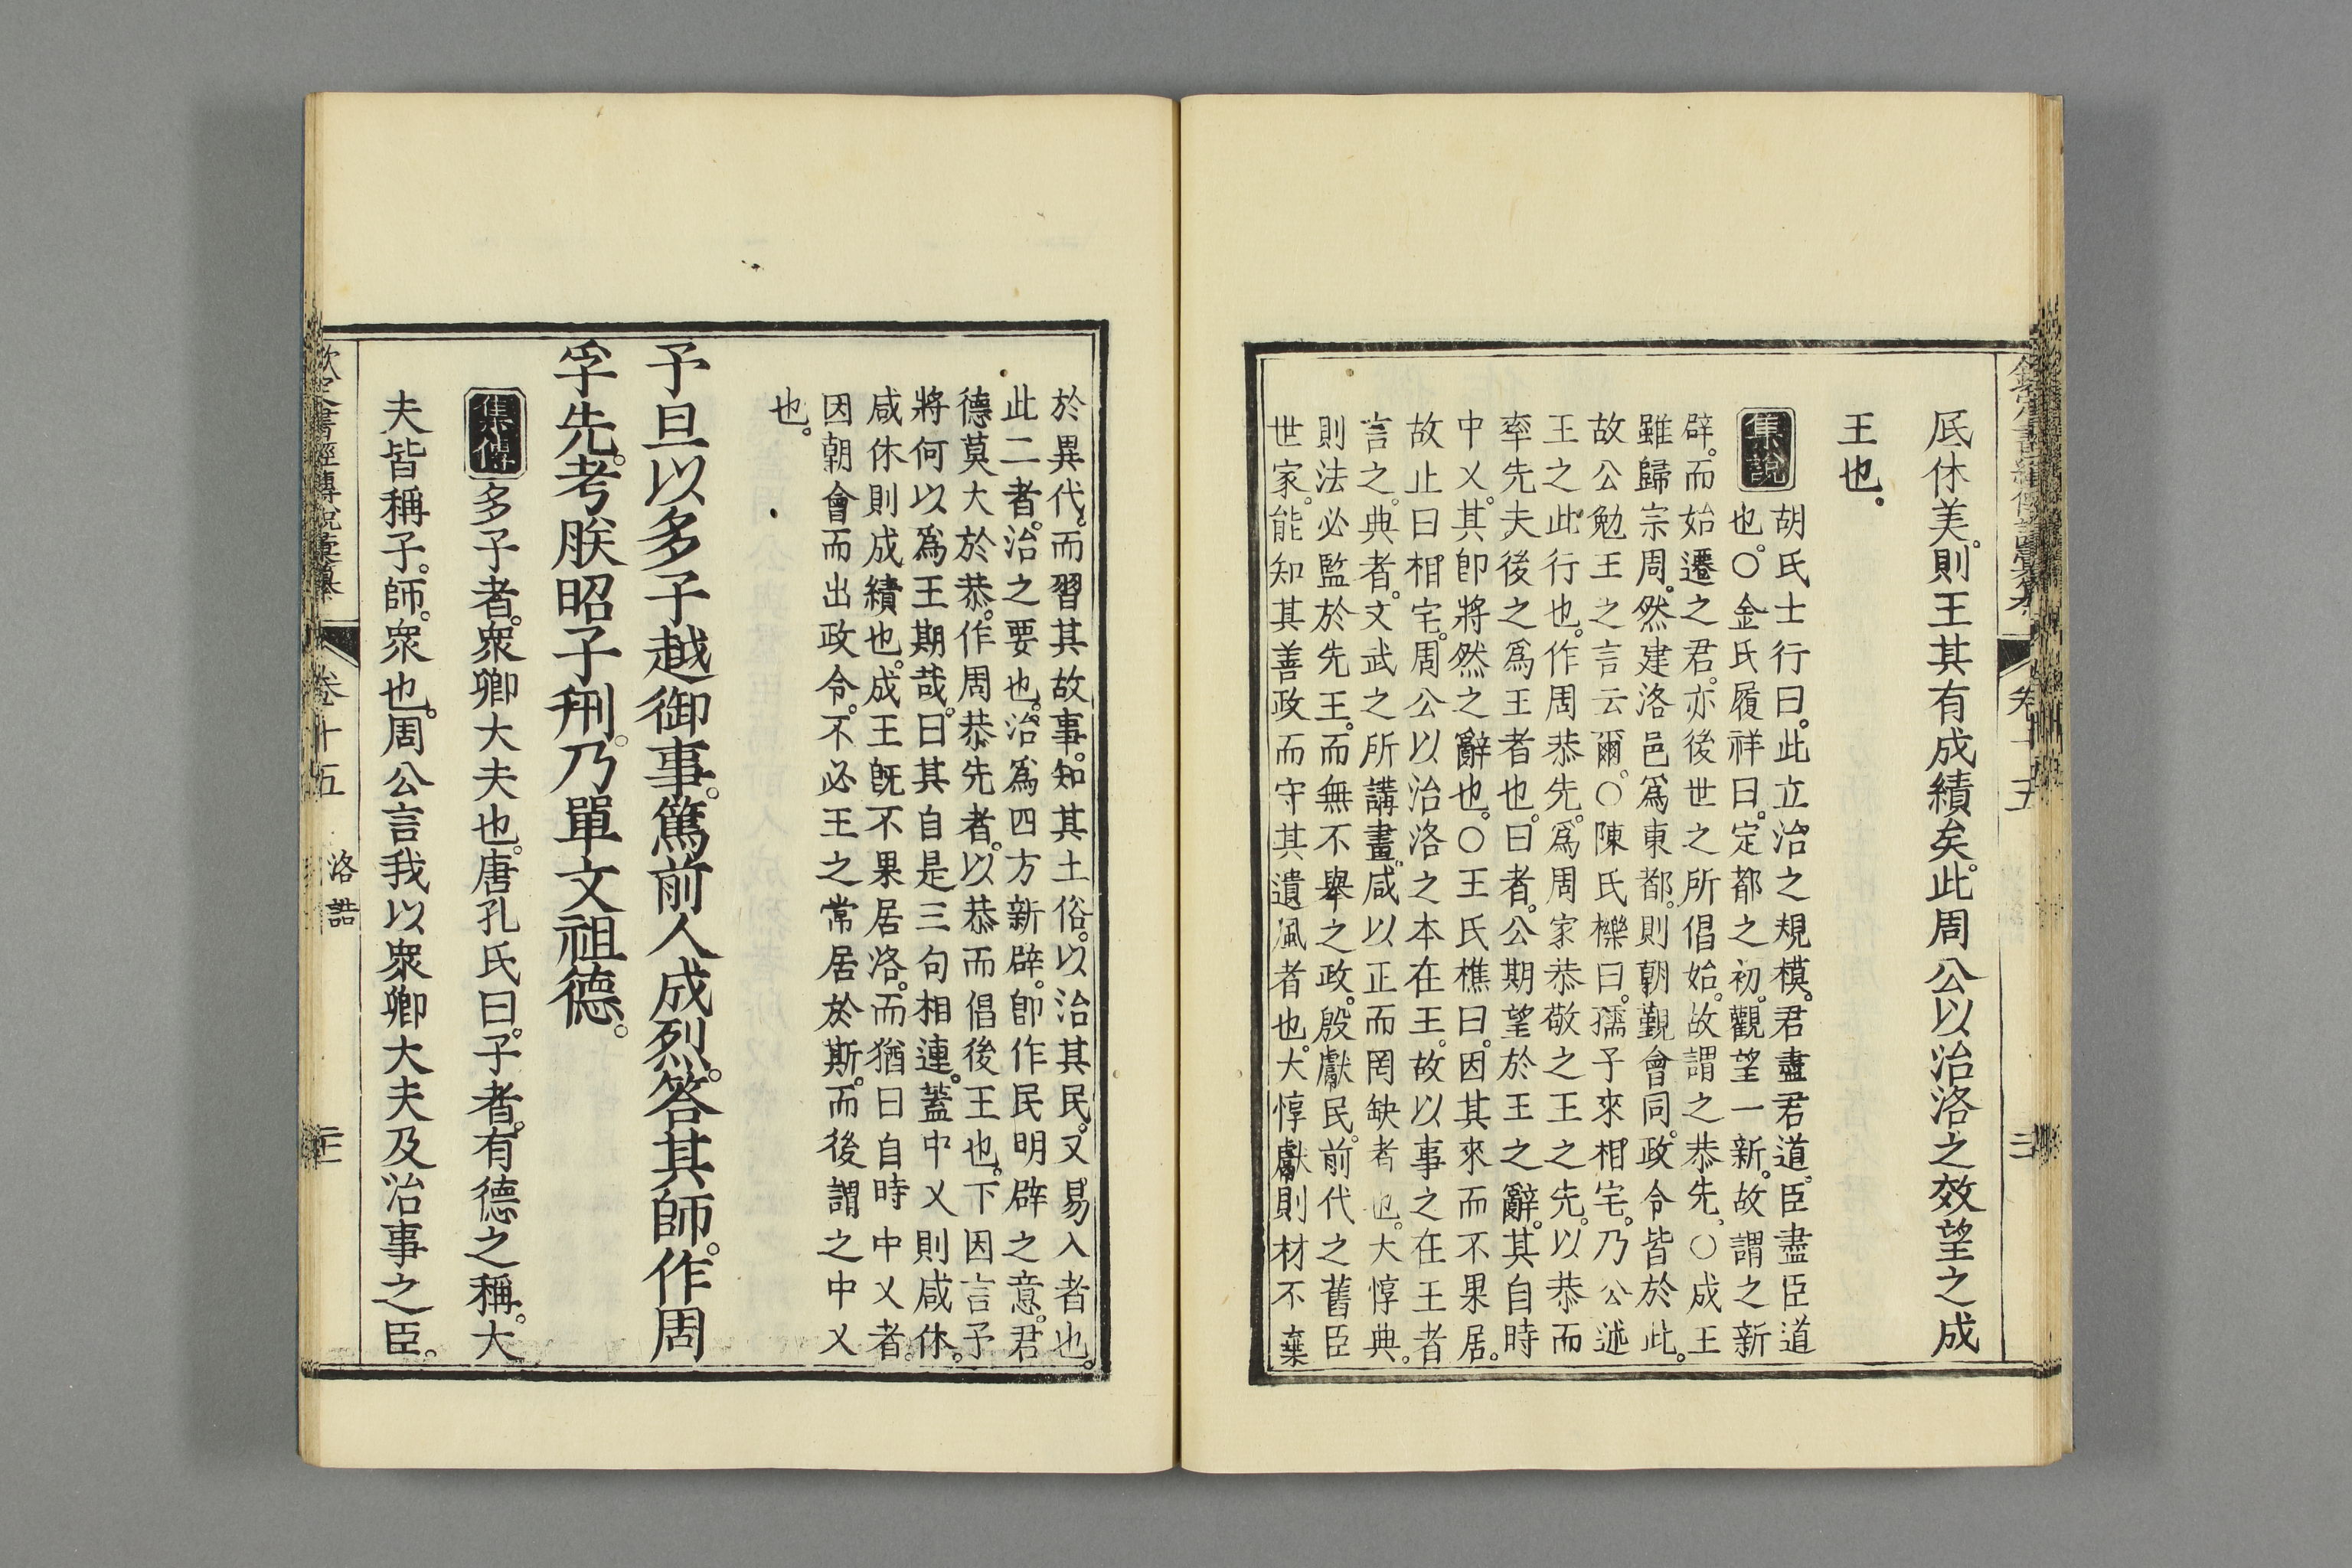 底休美。則王其有成績矣。此周公以治洛之效望之成
王也。
集說
胡氏士行曰。此立治之規模。君盡君道。臣盡臣道
也。○金氏履祥曰。定都之初。觀望一新。故謂之新
辟。而始遷之君。亦後世之所倡始。故謂之恭先。○成王
雖歸宗周。然建洛邑爲東都。則朝覲會同。政令皆於此。
故公勉王之言云爾。○陳氏櫟曰。孺子來相宅。乃公述
王之此行也。作周恭先。爲周家恭敬之王之先。以恭而
率先夫後之爲王者也。曰者。公期望於王之辭。其自時
中乂。其卽將然之辭也。○王氏樵曰。因其來而不果居。
故止曰相宅。周公以治洛之本在王。故以事之在王者
言之。典者。文武之所講畫。咸以正而罔缺者也。大惇典。
則法必監於先王。而無不舉之政。殷獻民。前代之舊臣
世家。能知其善政而守其遺風者也。大惇獻則材不棄
於異代。而習其故事。知其土俗。以治其民。又易入者也。
此二者。治之要也。治爲四方新辟。卽作民明辟之意。君
德莫大於恭。作周恭先者。以恭而倡後王也。下因言予
將何以爲王期哉。曰其自是三句相連。蓋中乂則咸休。
咸休則成績也。成王旣不果居洛。而猶曰自時中乂者。
因朝會而出政令。不必王之常居於斯。而後謂之中乂
也。
予旦以多子越御事。篤前人成烈。答其師。作周
孚先。考朕昭子刑。乃單文祖德。
集傳
多子者。衆卿大夫也。唐孔氏曰。子者。有德之稱。大
夫皆稱子。師。衆也。周公言我以衆卿大夫及治事之臣。
欽定書經傳說彙纂 卷十五 洛誥